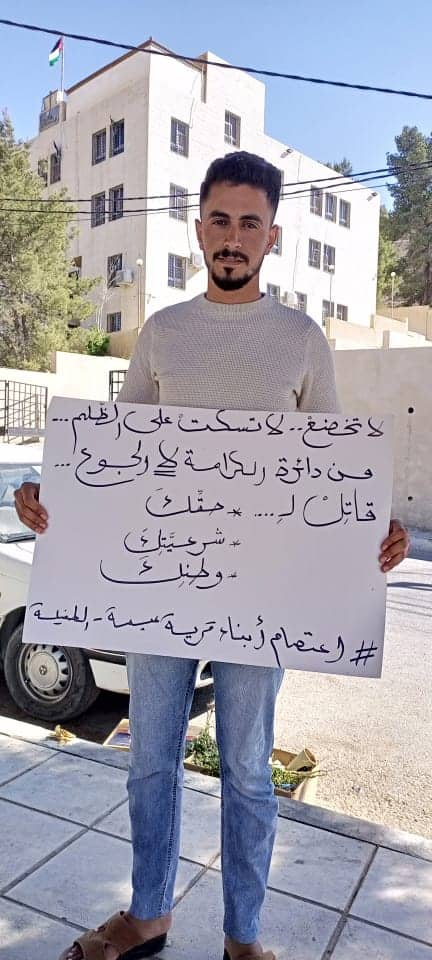 لا تخضعْ.. لا تسكتْ على الظلم...
من دائرة الكرامة لا الجوع ...
قاتِلْ لـِ.... * حقِّكَ
* شرعيَّتِكَ
* وطنِكَ
# اعتصام أبناء قرية عيمة - الطفيلة